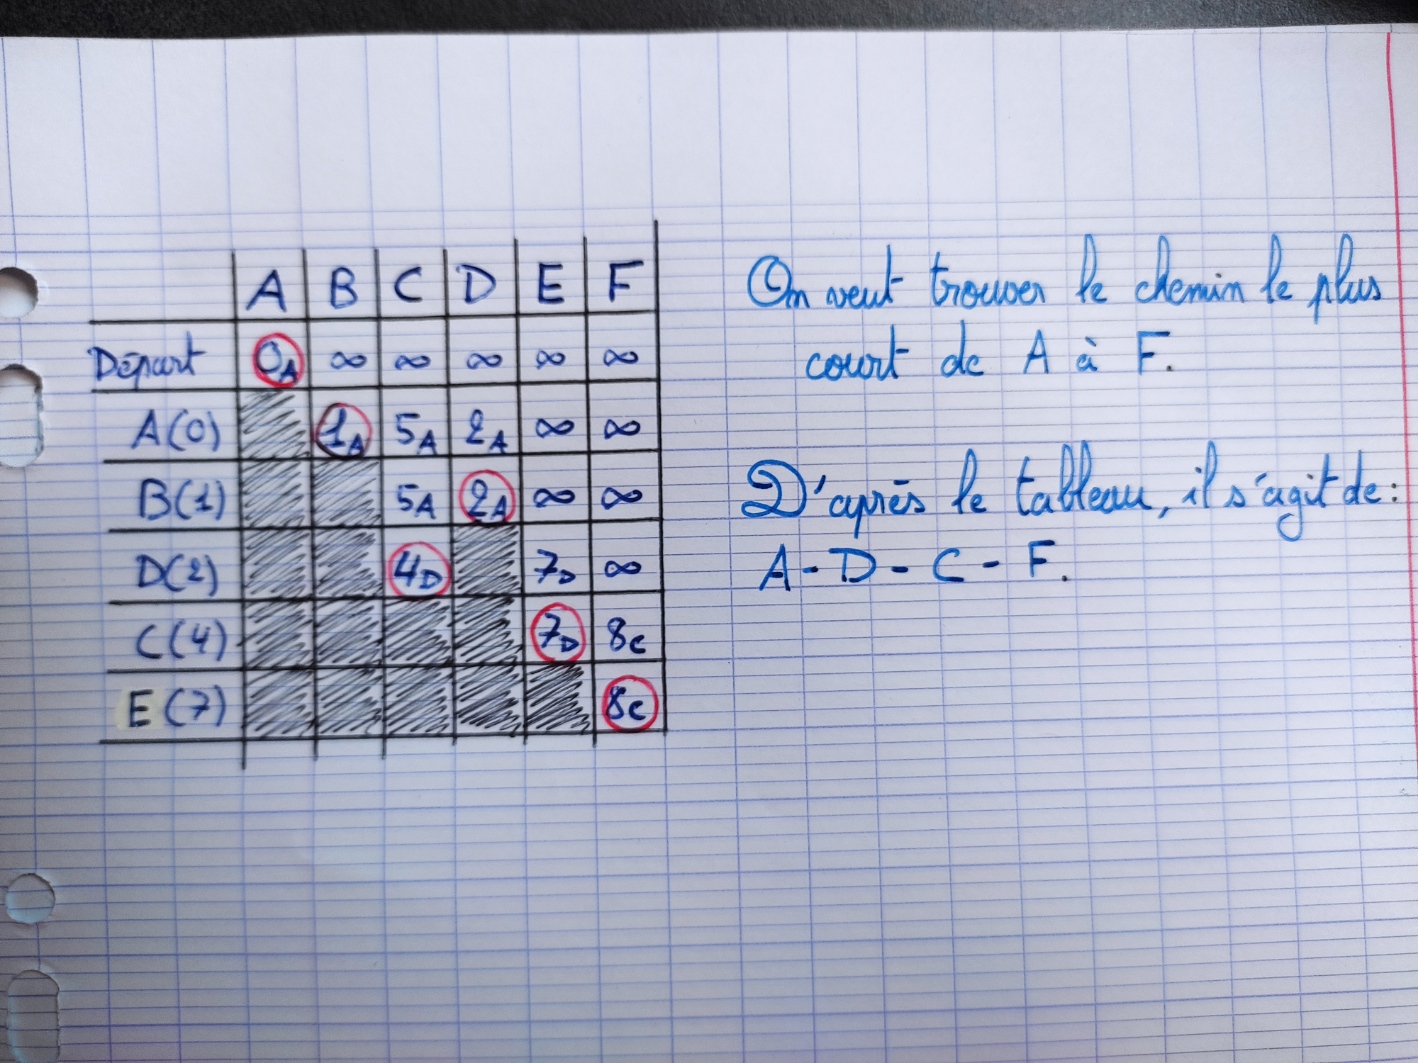 A B C D E F
Départ 0A ∞ ∞ ∞ ∞ ∞
A(0) 1A 5A 2A ∞ ∞
B(1) 5A 2A ∞ ∞
D(2) 4D 7D ∞
C(4) 7D 8C
E(7) 8C
On veut trouver le chemin le plus
court de A à F.
D'après le tableau, il s'agit de :
A - D - C - F.